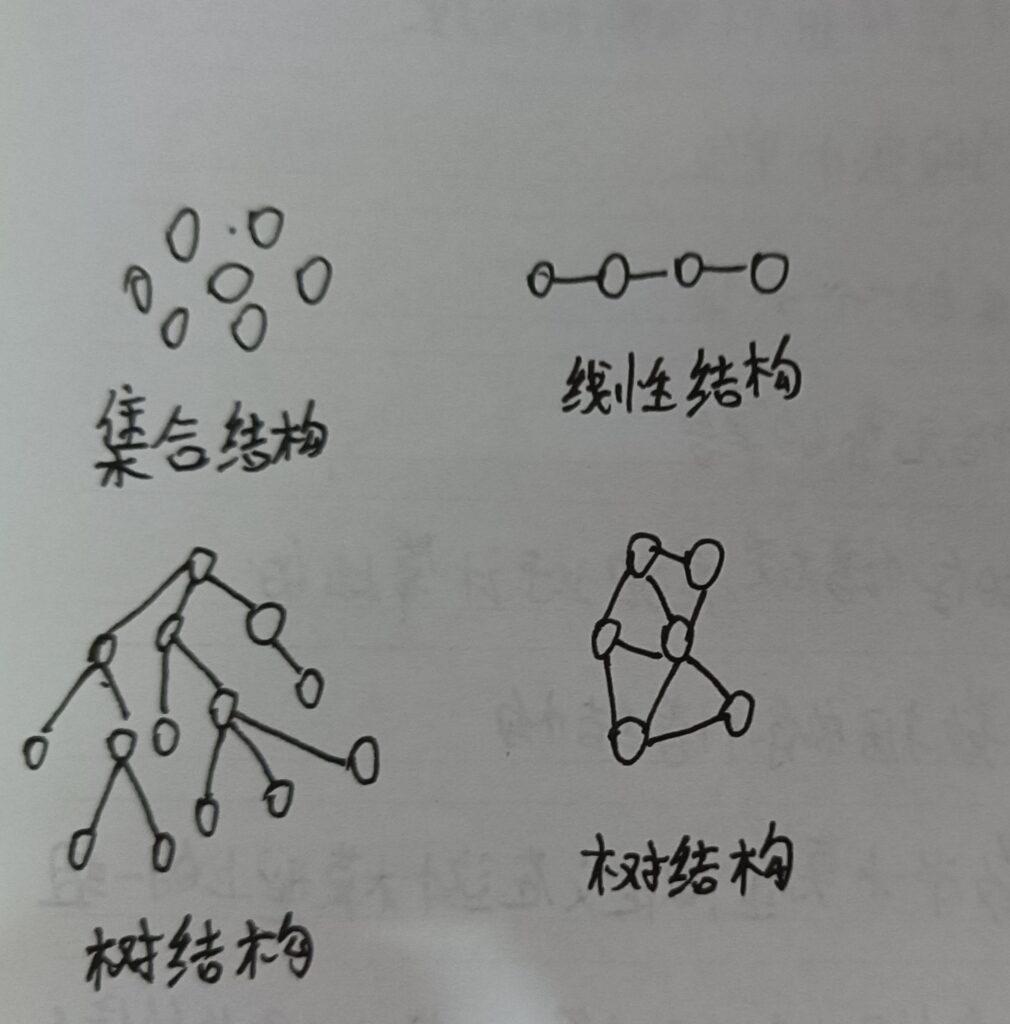 集合结构
线性结构
树结构
树结构